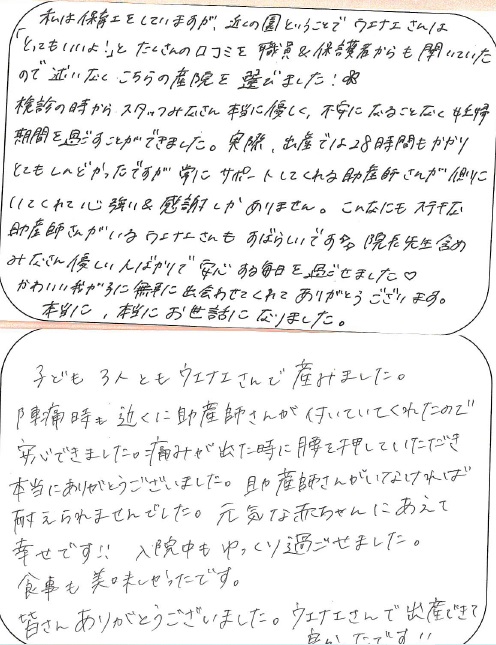 私は保育士をしていますが、近くの園ということでウエナエさんは
「とってもいいよ!」とたくさんの口コミを職員&保護者からも聞いていた
ので迷いなくこちらの産院を選びました!
検診の時からスタッフみなさん本当に優しく、不安になることなく妊婦
期間を過ごすことができました。実際、出産では28時間もかかり
とてもしんどかったですが常にサポートしてくれる助産師さんが側に
いてくれて心強い&感謝しかありません。こんなにもステキな
助産師さんがいるウエナエさんもすばらしいです 院長先生含め
みなさん優しい人ばかりで安心する毎日を過ごせました♡
かわいい我が子に無事に出会わせてくれてありがとうございます。
本当に、本当にお世話になりました。
子ども3人ともウエナエさんで産みました。
陣痛時も近くに助産師さんが付いていてくれたので
安心できました。痛みが出た時に腰を押していただき
本当にありがとうございました。助産師さんがいなければ
耐えられませんでした。元気な赤ちゃんにあえて
幸せです!! 入院中もゆっくり過ごせました。
食事も美味しかったです。
皆さんありがとうございました。ウエナエさんで出産できて
良かったです!!